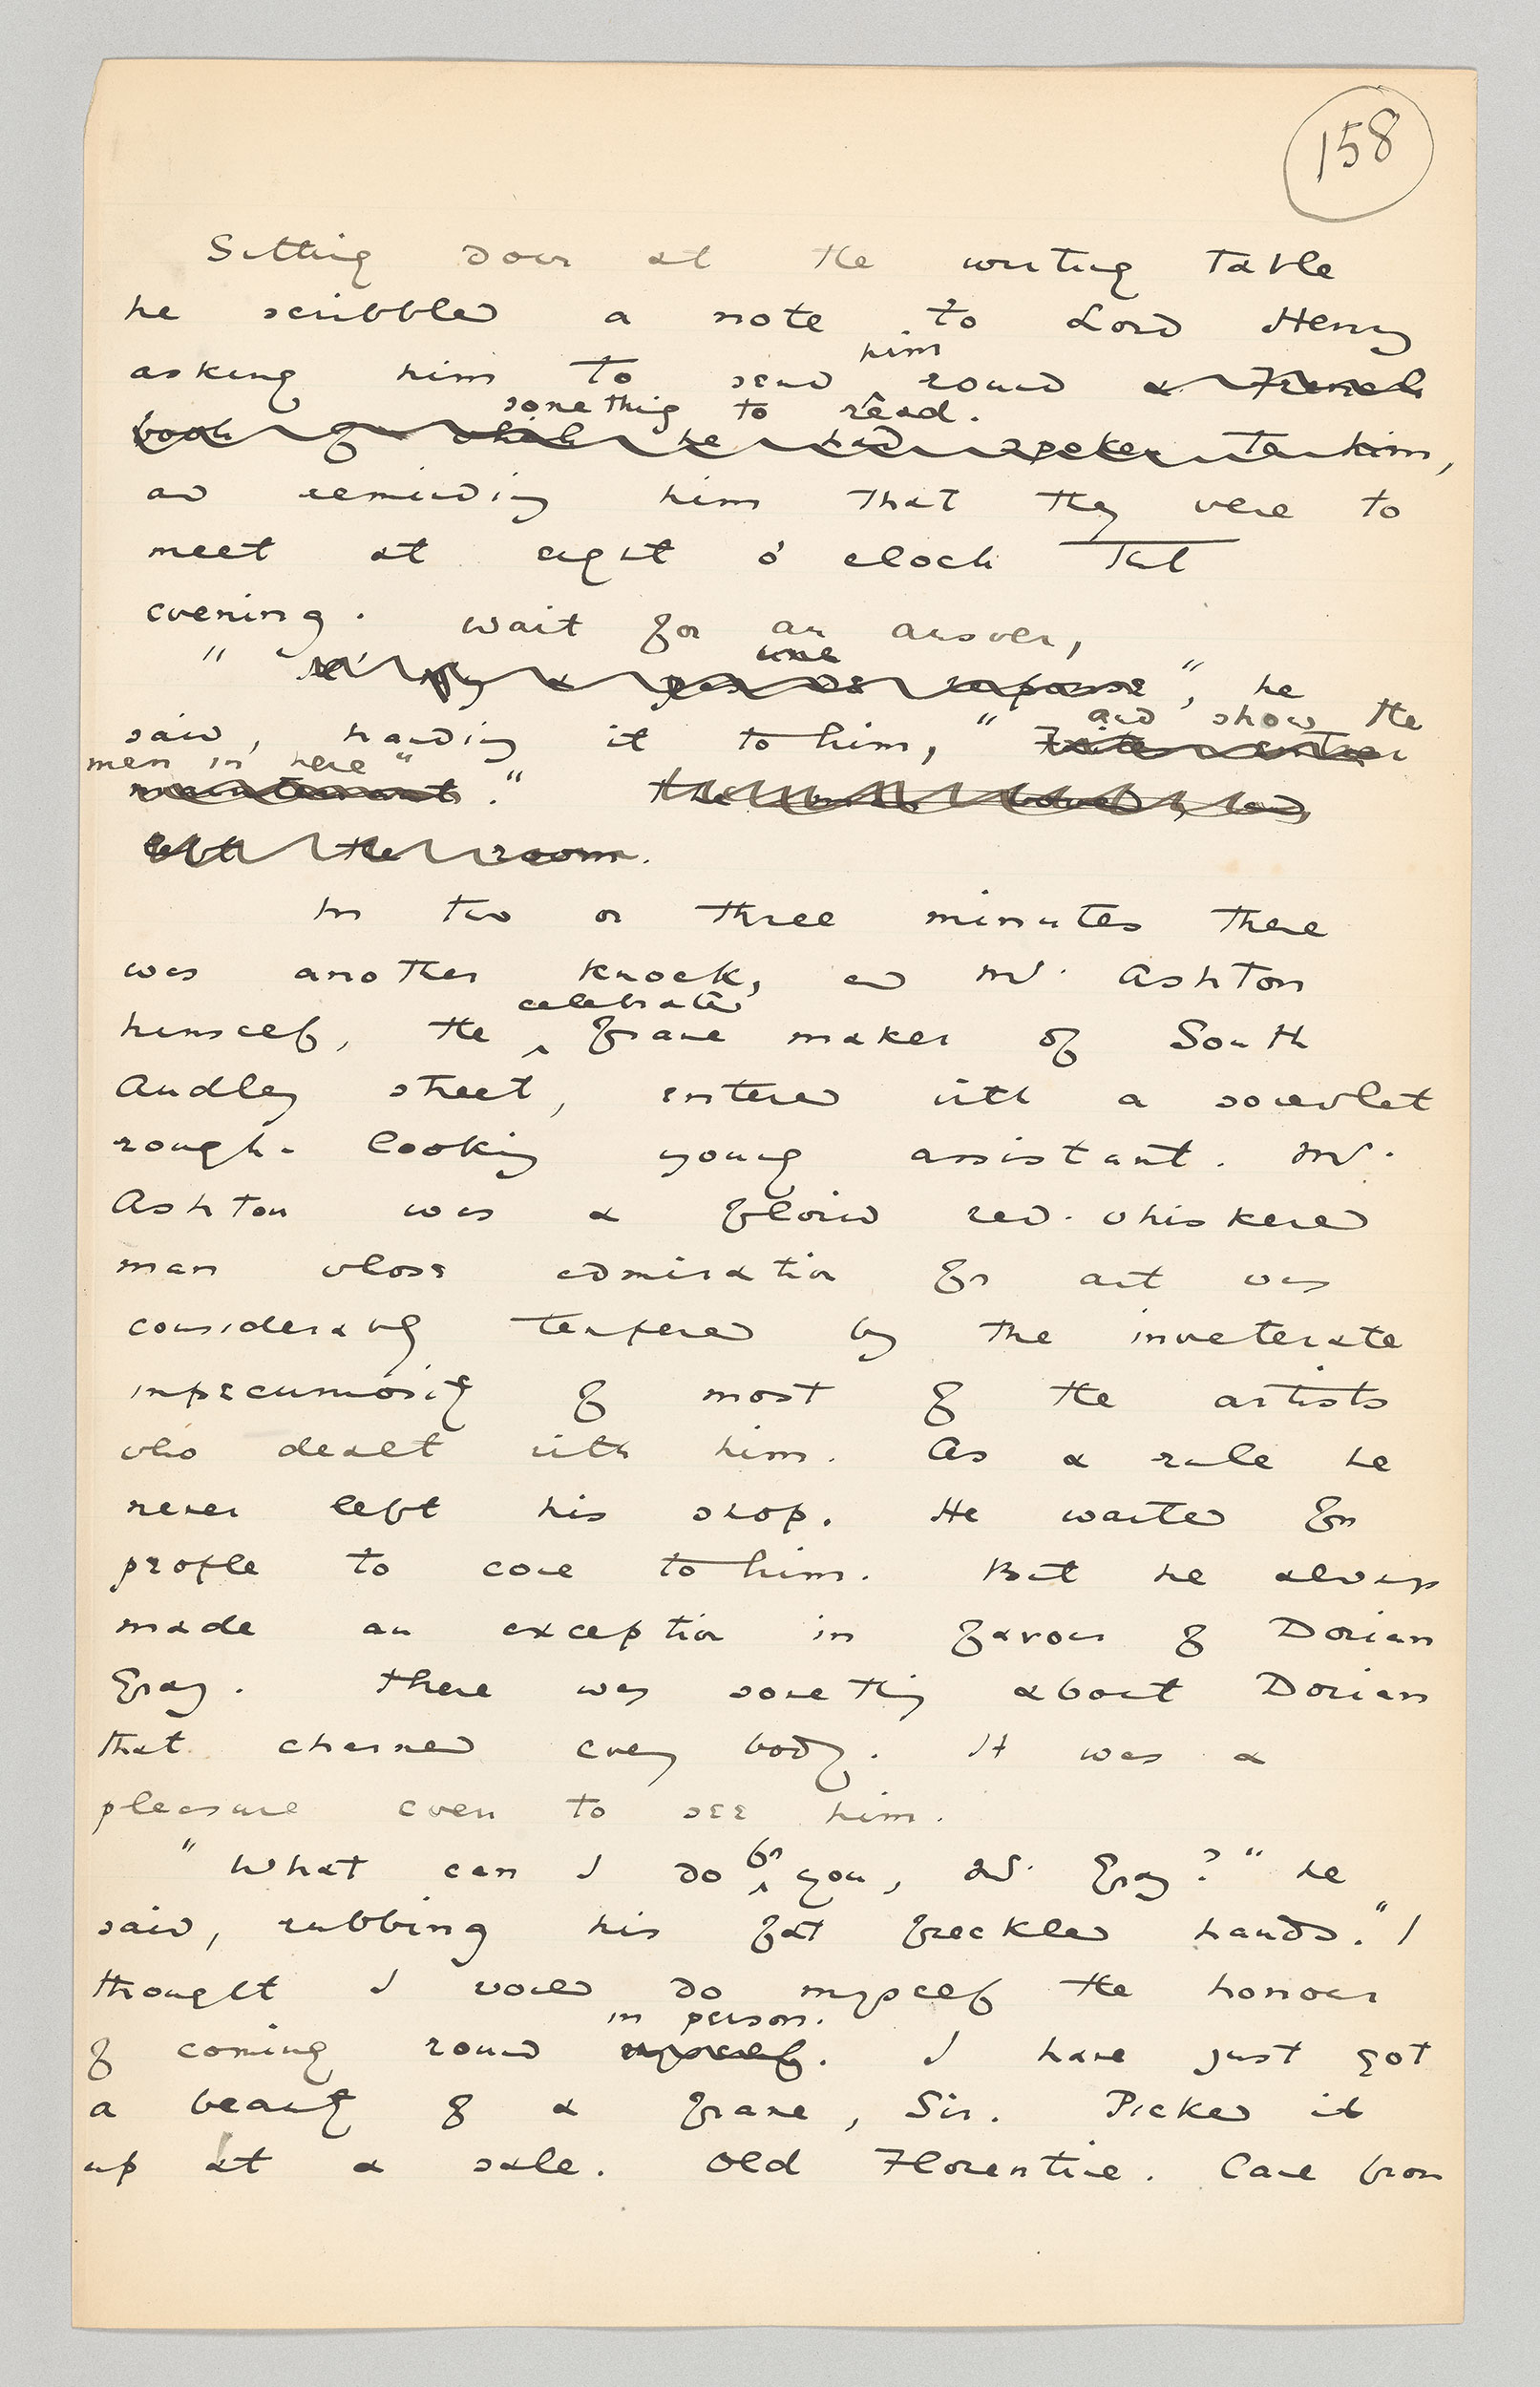 158
Sitting down at the writing table
he scribbled a note to Lord Henry
him
asking him to send round a French
something to read.
book of which he had spoken to him,
and reminding him that they were to
meet at eight o'clock that
evening. Wait for an answer,
"
", he
and show the
said, handing it to him, "Faites entrer
men in here"
maintenant." The bowed, and
left the room.
In two or three minutes there
was another knock, and Mr. Ashton
celebrated
himself, the frame maker of South
Audley street, entered with a somewhat
rough-looking young assistant. Mr.
Ashton was a florid red-whiskered
man whose admiration for art was
considerably tempered by the inveterate
impecuniosity of most of the artists
who dealt with him. As a rule he
never left his shop. He waited for
people to come to him. But he always
made an exception in favour of Dorian
Gray. There was something about Dorian
that charmed every body. It was a
pleasure even to see him.
for
"What can I do you, Mr. Gray?" he
said, rubbing his fat freckled hands. "I
thought I would do myself the honour
in person.
of coming round myself. I have just got
a beauty of a frame, Sir. Picked it
up at a sale. Old Florentine. Came from